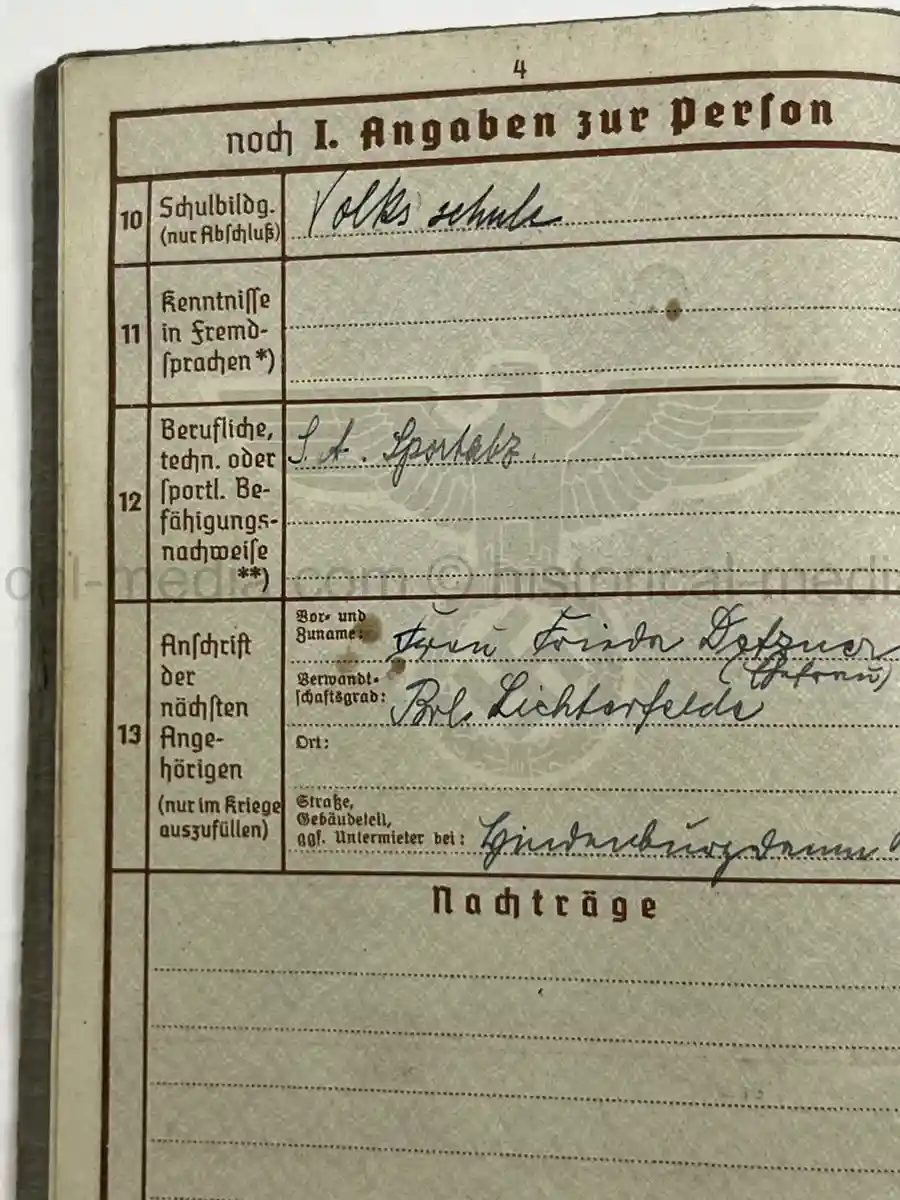 4
noch I. Angaben zur Person
10 Schulbildg. (nur Abschluß) Volksschule
11 Kenntnisse in Fremd-
sprachen *)
12 Berufliche,
techn. oder
sportl. Be-
fähigungs-
nachweise
**)
S. A. Sportabz.
13 Anschrift
der
nächsten
Ange-
hörigen
(nur im Kriege
auszufüllen)
Vor- und
Zuname: Frau Frieda Detzner
(Ehefrau)
Verwandt-
schaftsgrad: Brl. Lichterfelde
Ort:
Straße,
Gebäudeteil,
ggf. Untermieter bei: Hindenburgdamm
Nachträge
onl-media.com © historical-media